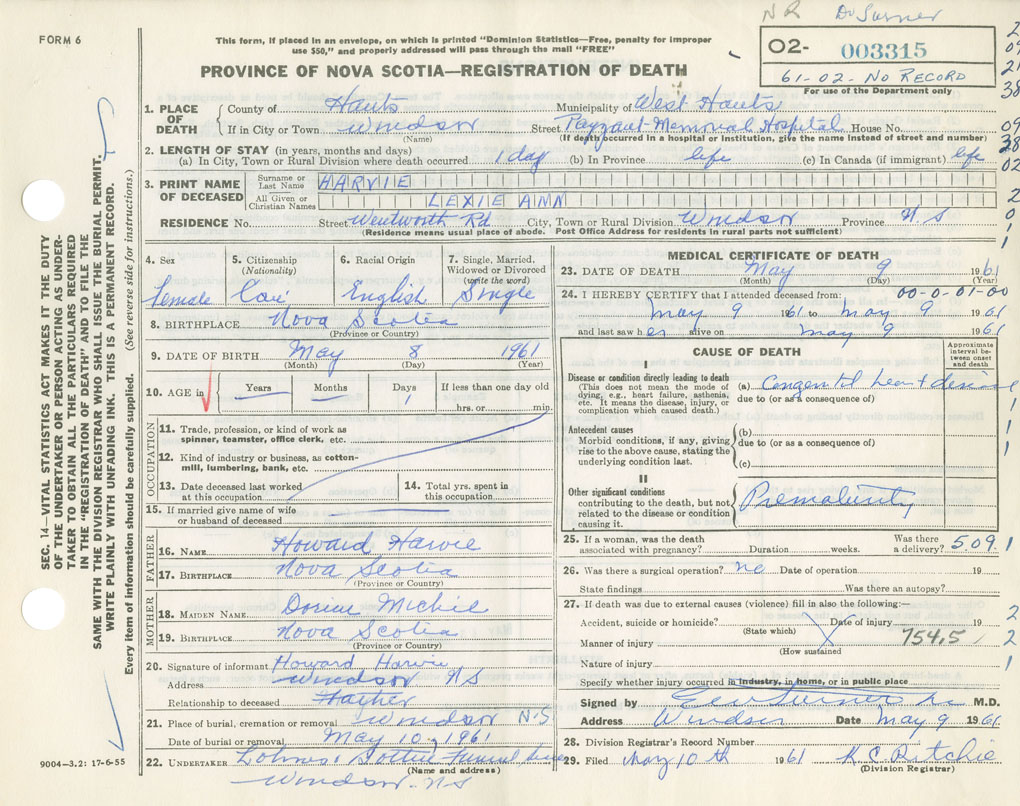 NR Dr Turner
FORM 6
This form, if placed in an envelope, on which is printed "Dominion Statistics—Free, penalty for improper
use $50," and properly addressed will pass through the mail "FREE"
PROVINCE OF NOVA SCOTIA—REGISTRATION OF DEATH
O2- 003315
61-02-No RECORD
For use of the Department only
SEC. 14—VITAL STATISTICS ACT MAKES IT THE DUTY
OF THE UNDERTAKER OR PERSON ACTING AS UNDER-
TAKER TO OBTAIN ALL THE PARTICULARS REQUIRED
IN THE "REGISTRATION OF DEATH" AND FILE THE
SAME WITH THE DIVISION REGISTRAR WHO SHALL ISSUE THE BURIAL PERMIT.
WRITE PLAINLY WITH UNFADING INK. THIS IS A PERMANENT RECORD.
Every item of information should be carefully supplied. (See reverse side for instructions.)
1. PLACE OF DEATH County of Hants Municipality of West Hants
If in City or Town Windsor Street Payzant-Memorial Hospital House No.
(Name) (If death occurred in a hospital or insitution, give the name instead of street and number)
2. LENGTH OF STAY (in years, months and days)
(a) In City, Town or Rural Division where death occurred 1 day (b) In Province life (c) In Canada (if immigrant) life
3. PRINT NAME OF DECEASED Surname or Last Name HARVIE
All Given or Christian Names LEXIE ANN
RESIDENCE No. Street Wentworth Rd City, Town or Rural Division Windsor Province N.S
(Residence means usual place of abode. Post Office Address for residents in rural parts not sufficient)
4. Sex 5. Citizenship (Nationality) 6. Racial Origin 7. Single, Married, Widowed or Divorced (write the word)
Female Can English Single
8. BIRTHPLACE Nova Scotia
(Province or Country)
9. DATE OF BIRTH May 8 1961
(Month) (Day) (Year)
10. AGE in Years Months Days If less than one day old
1 hrs. or min.
OCCUPATION
11. Trade, profession, or kind of work as
spinner, teamster, office clerk, etc.
12. Kind of industry or business, as cotton-
mill, lumbering, bank, etc.
13. Date deceased last worked at this occupation
14. Total yrs. spent in this occupation
15. If married give name of wife
or husband of deceased
FATHER
16. NAME Howard Harvie
17. BIRTHPLACE Nova Scotia
(Province or Country)
MOTHER
18. MAIDEN NAME
19. BIRTHPLACE Nova Scotia
(Province or Country)
20. Signature of informant Howard Harvie
Address Windsor NS
Relationship to deceased Father
21. Place of burial, cremation or removal Windsor N.S
Date of burial or removal May 10, 1961
22. UNDERTAKER Funeral
(Name and address)
Windsor. NS
9004—3.2: 17-6-55
MEDICAL CERTIFICATE OF DEATH
23. DATE OF DEATH May 9 1961
(Month) (Day) (Year)
24. I HEREBY CERTIFY that I attended deceased from: 00-0-01-00
May 9 1961 to May 9 1961
and last saw her alive on May 9 1961
CAUSE OF DEATH
Approximate interval between onset and death
I
Disease or condition directly leading to death
(This does not mean the mode of
dying, e.g., heart failure, asthenia,
etc. It means the disease, injury, or
complication which caused death.)
(a) Congenital heart disease
due to (or as a consequence of)
Antecedent causes
Morbid conditions, if any, giving
rise to the above cause, stating the
underlying condition last.
(b)
due to (or as a consequence of)
(c)
II
Other significant conditions
contributing to the death, but not
related to the disease or condition
causing it.
Prematurity
25. If a woman, was the death
associated with pregnancy? Duration weeks. Was there a delivery? 509.1
26. Was there a surgical operation? no Date of operation 19
State findings Was there an autopsy?
27. If death was due to external causes (violence) fill in also the following:—
Accident, suicide or homicide? Date of injury 19
(State which)
Manner of injury 754.5
(How sustained)
Nature of injury
Specify whether injury occurred in industry, in home, or in public place
Signed by M.D.
Address Windsor Date May 9 1961
28. Division Registrar's Record Number
29. Filed May 10th 1961 Ritchie
(Division Registrar)